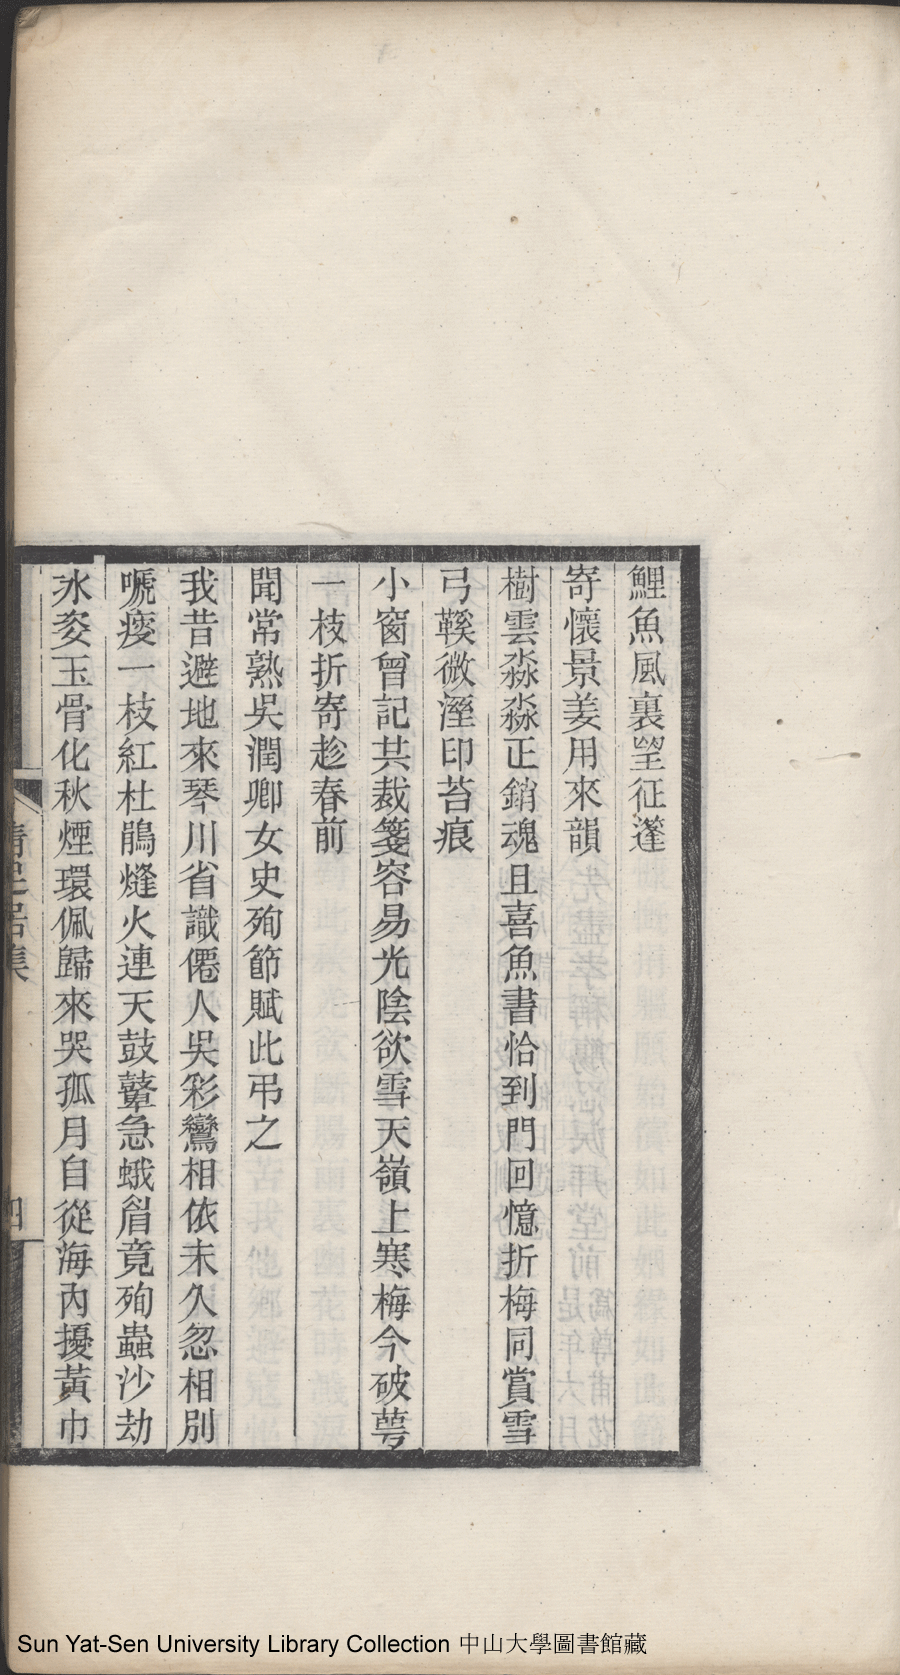 鯉魚風裏朢征篷
寄懷景姜用來韻
樹雲淼淼正銷魂且喜魚書恰到門回憶折梅同賞雪
弓鞵微溼印苔痕
小窗曾記共裁箋容易光陰欲雪天嶺上寒梅今破萼
一枝折寄趁春前
聞常熟吳潤卿女史殉節賦此弔之
我昔避地來琴川省識僊人吳彩鸞相依未久忽相別
嗁痕一枝紅杜鵑燧火連天鼓鼙急蛾眉竟殉蟲沙劫
冰姿玉骨化秋煙環佩歸來哭孤月自從海內擾黃巾
居集
四
Sun Yat-Sen University Library Collection 中山大學圖書館藏